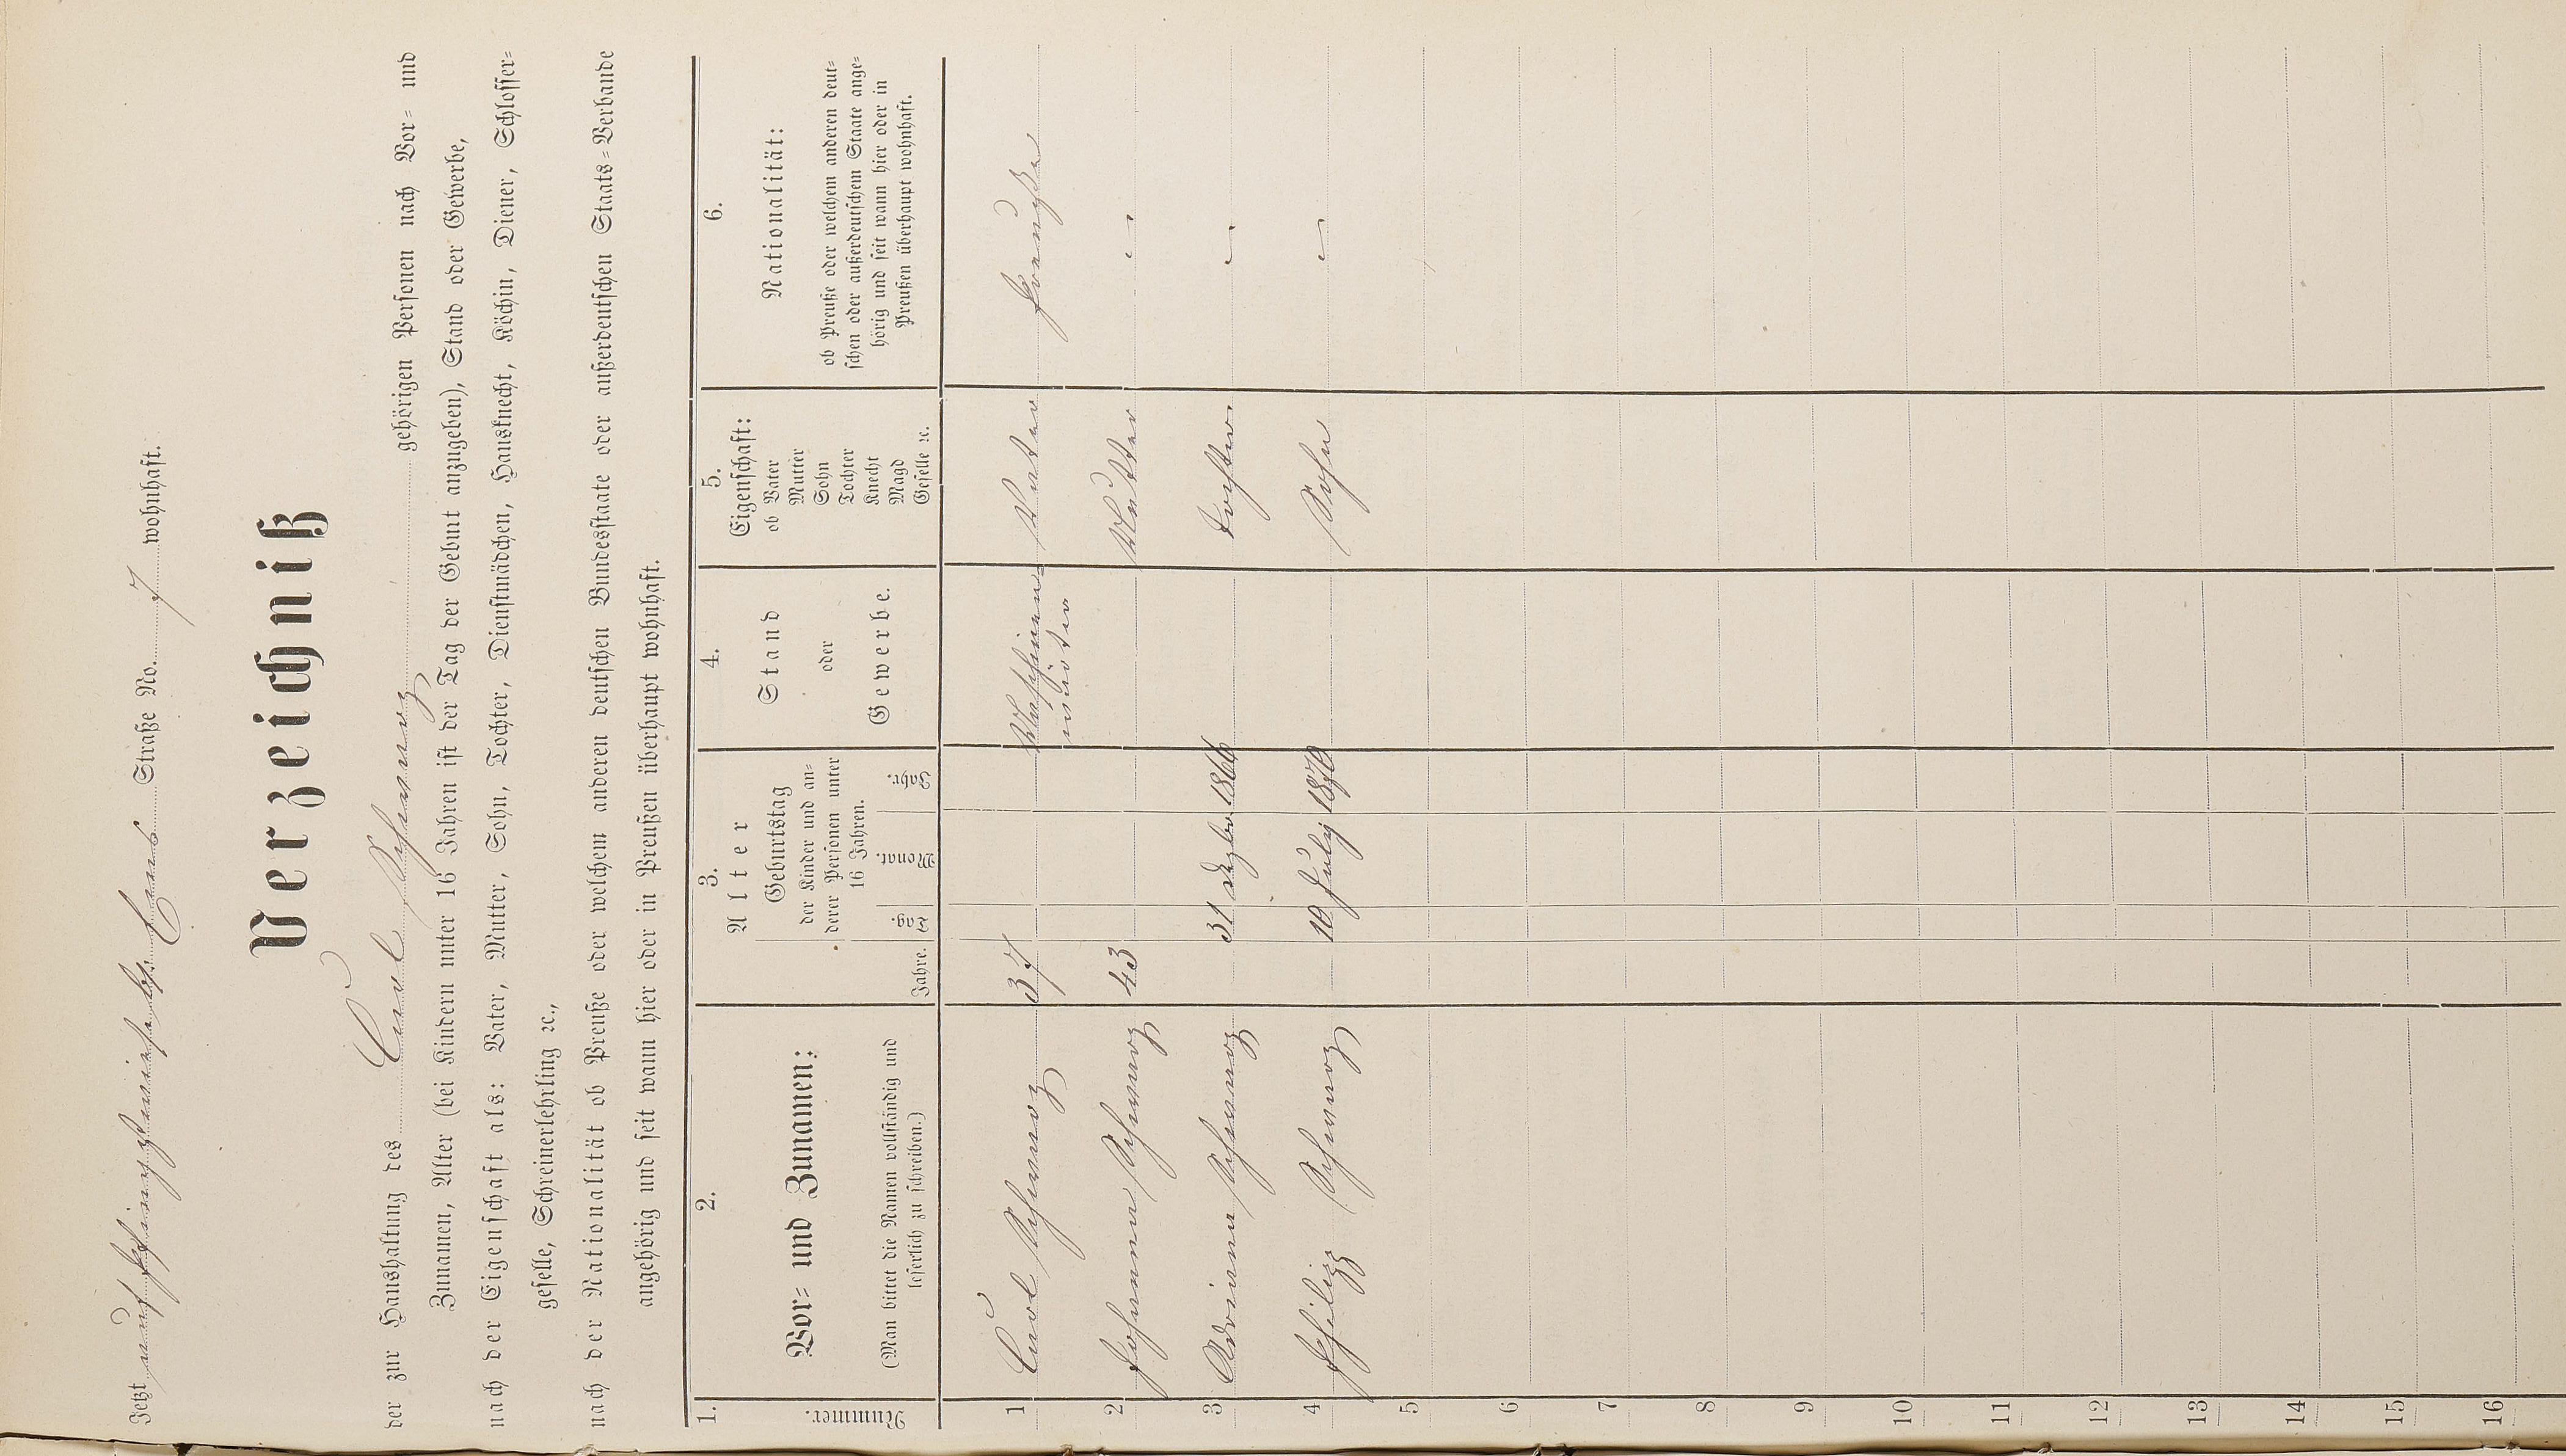 Jetzt Straße No. 7 wohnhaft.
Verzeichniß
der zur Haushaltung des Carl Schwarz gehörigen Personen nach Vor- und
Zunamen, Alter (bei Kindern unter 16 Jahren ist der Tag der Geburt anzugeben), Stand oder Gewerbe,
nach der Eigenschaft als: Vater, Mutter, Sohn, Tochter, Dienstmädchen, Hausknecht, Köchin, Diener, Schlosser-
geselle, Schreinerlehrling ꝛc.,
nach der Nationalität ob Preuße oder welchem anderen deutschen Bundesstaate oder außerdeutschen Staats-Verbande
angehörig und seit wann hier oder in Preußen überhaupt wohnhaft.
1.
Nummer.
2.
Vor- und Zunamen:
(Man bittet die Namen vollständig und
leserlich zu schreiben.)
3.
Alter
Geburtstag
der Kinder und an-
derer Personen unter
16 Jahren.
Jahre. Tag. Monat. Jahr.
4.
Stand
oder
Gewerbe.
5.
Eigenschaft:
ob Vater
Mutter
Sohn
Tochter
Knecht
Magd
Geselle ꝛc.
6.
Nationalität:
ob Preuße oder welchem anderen deut-
schen oder außerdeutschem Staate ange-
hörig und seit wann hier oder in
Preußen überhaupt wohnhaft.
1 Carl Schwarz 37 Maschinen- Vater Preuße
wärter
2 Johanna Schwarz 43 Mutter "
3 Adriana Schwarz 31 Dezbr 1866 Tochter "
4 Philipp Schwarz 10 July 1870 Sohn "
5
6
7
8
9
10
11
12
13
14
15
16